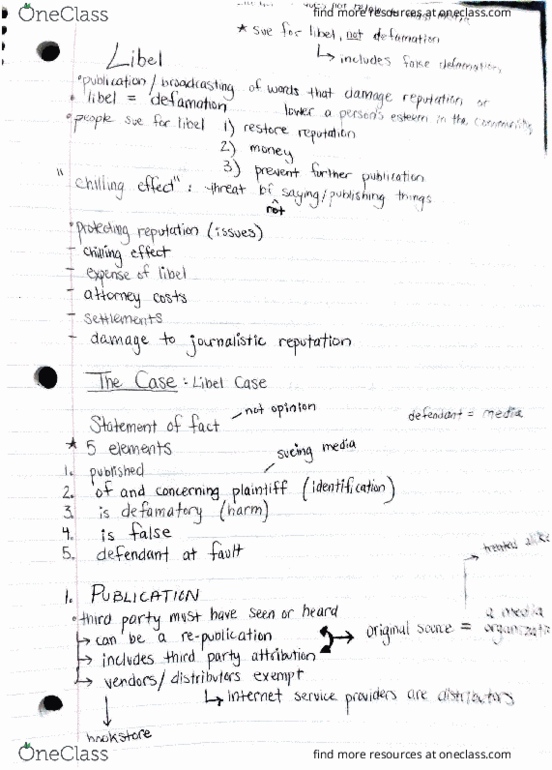 OneClass
find more resources at oneclass.com
★ sue for libel, not defamation
↳ includes fake defamation
Libel
• publication / broadcasting of words that damage reputation or
lower a person's esteem in the community
• libel = defamation
• people sue for libel 1) restore reputation
2) money
3) prevent further publication
"chilling effect": threat bf saying/publishing things
not
• protecting reputation (issues)
- chilling effect
- expense of libel
- attorney costs
- settlements
- damage to journalistic reputation
The Case: Libel Case
Statement of fact - not opinion
defendant = media
★ 5 elements
sueing media
1. published
2. of and concerning plaintiff (identification)
3. is defamatory (harm)
4. is false
5. defendant at fault
treated
1. PUBLICATION
• third party must have seen or heard
↳ can be a re-publication
original source = a media organization
↳ includes third party attribution
↳ vendors/distributors exempt
↳ Internet service providers are distributors
bookstore
OneClass
find more resources at oneclass.com